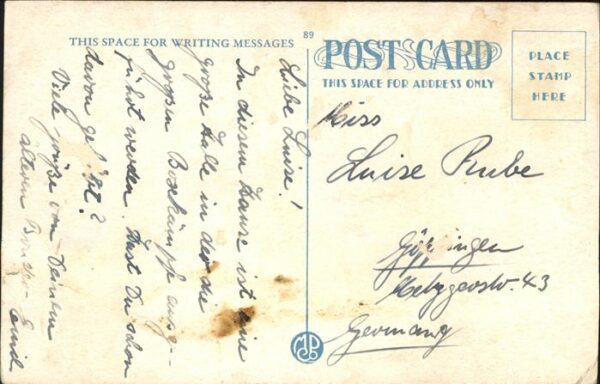 THIS SPACE FOR WRITING MESSAGES
89
POST CARD
THIS SPACE FOR ADDRESS ONLY
PLACE
STAMP
HERE
Liebe Luise!
In diesem Hause ist eine
große Halle in der die
großen Boxkämpfe ausge-
führt werden. Hast Du schon
davon
Viele Grüße von Deinem
älteren Bruder Emil
Miss
Luise Rube
Göppingen
Metzgerstr. 43
Germany